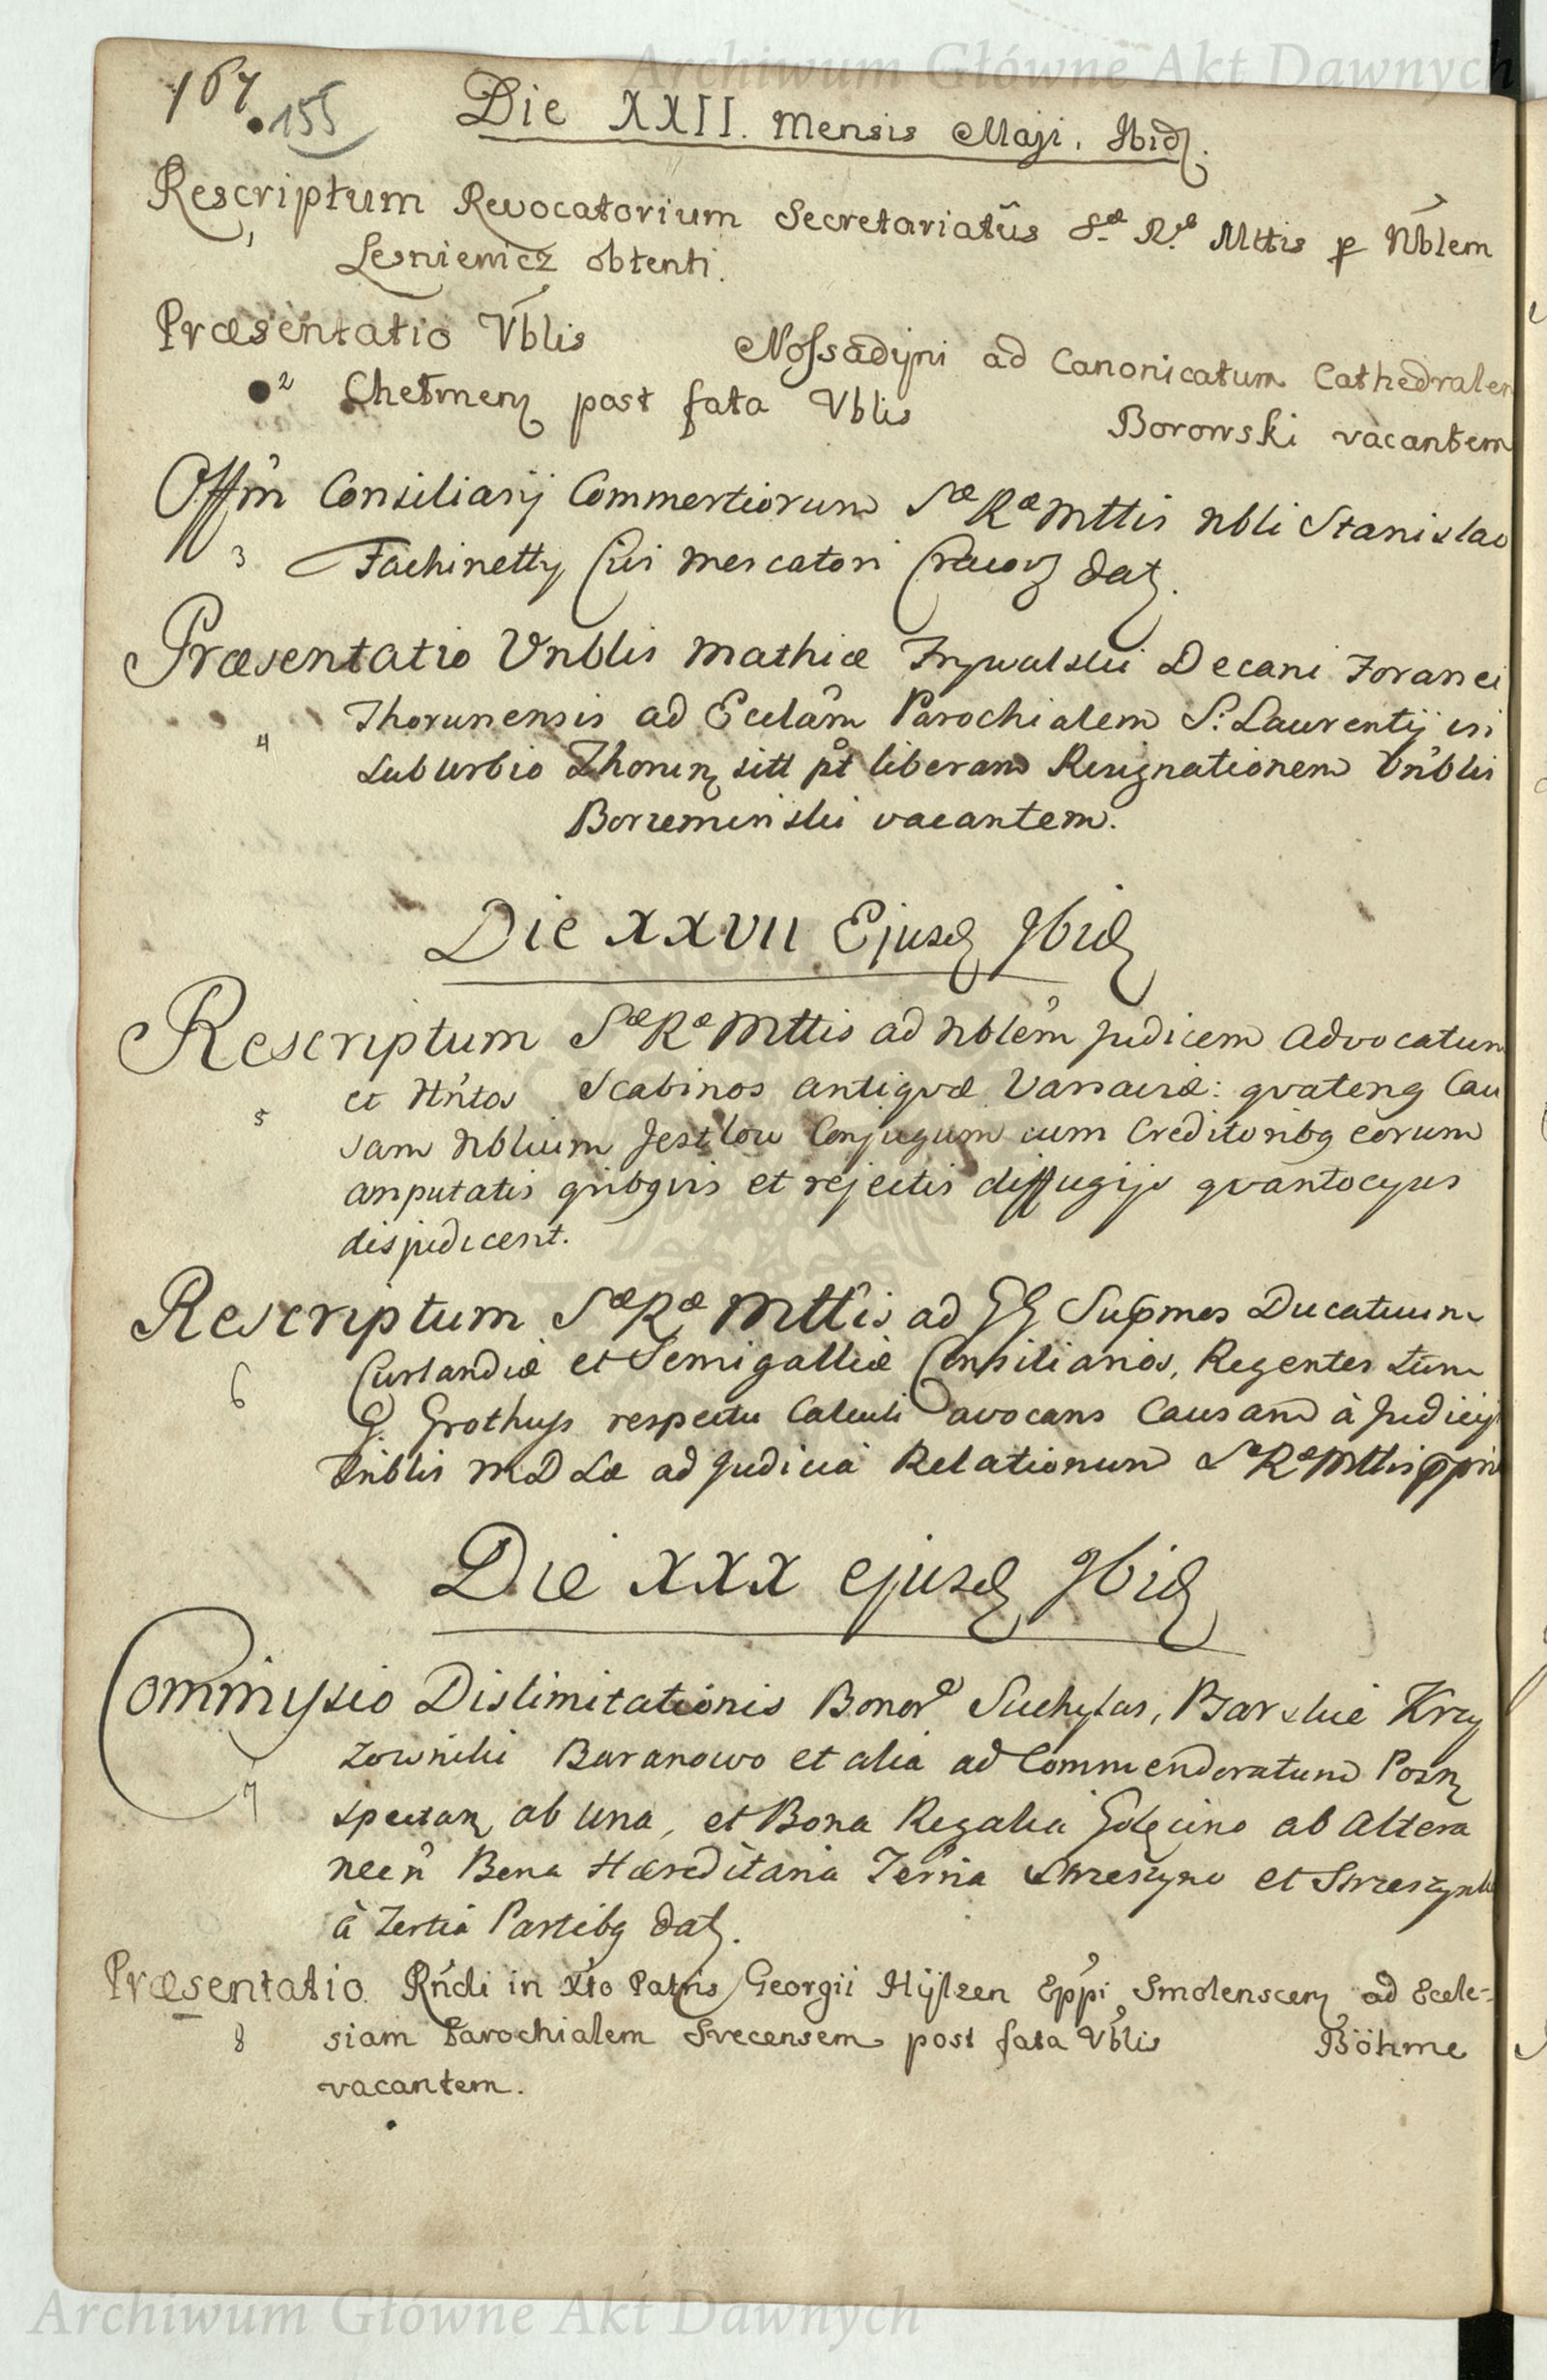 Archiwum Główne Akt Dawnych
167
155
Die XXII. Mensis Maji. Ibid.
Rescriptum Revocatorium Secretariatûs S.æ R.æ Mttis p Nblem
1 Lesniewicz obtenti.
Præsentatio Vblis Nossadijni ad Canonicatum Cathedralem
2 Chełmen post fata Vblis Borowski vacantem
Offm Consiliarij Commertiorum Sæ Ræ Mttis Nbli Stanislao
3 Fachinetty Civi Mercatori Cracov dat.
Præsentatio Vnblis Mathiæ Trywalski Decani Foranei
Thorunensis ad Eccläm Parochialem S: Laurentij in
4 Suburbio Thorun sitt pt liberam Resignationem Vnblis
Borzeminski vacantem.
Die XXVII Ejusd Ibid
Rescriptum Sæ Ræ Mttis ad Nblem Judicem Advocatum
et Hntos Scabinos Antiquæ Varsaviæ: quatenq Cau
5 sam Nblium Conjugum cum Creditoribq eorum
amputatis qnibqvis et rejectis diffugijs qvantocyus
disjudicent.
Rescriptum Sæ Ræ Mttis ad GG Supmos Ducatuum
Curlandiæ et Semigalliæ Consiliarios, Regentes tum
6 G. Grothuss respectu Calculi avocans Causam à Judicijs
Tribblis M D Læ ad Judicia Relationum Sæ Ræ Mttis ppria
Die XXX ejusd Ibid
Commissio Dislimitationis Bonor Suchylas, Barskie Krzy
zowniki Baranowo et alia ad Commendoratum Pozn
7 spectan ab una, et Bona Regalia Golęcino ab altera
necn Bona Hæreditaria Terria Strzeszyno et Strzeszynki
à Tertia Partibq dat.
Præsentatio Rndi in Xto Patris Georgii Hÿlzen Eppi Smolenscen ad Eccle-
8 siam Parochialem Svecensem post fata Vblis Böhme
vacantem.
Archiwum Główne Akt Dawnych